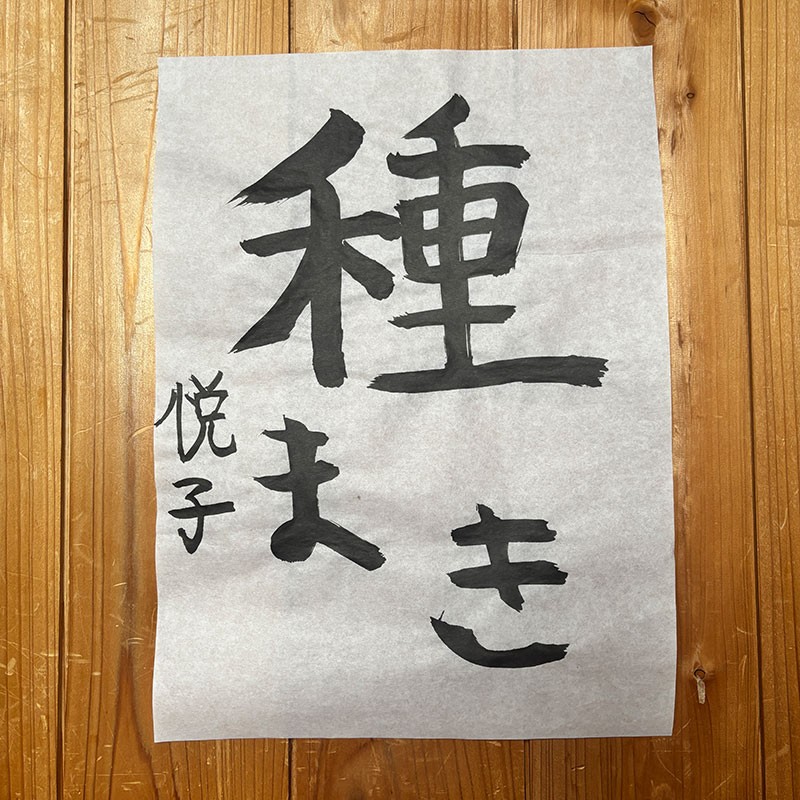 種まき
悦子